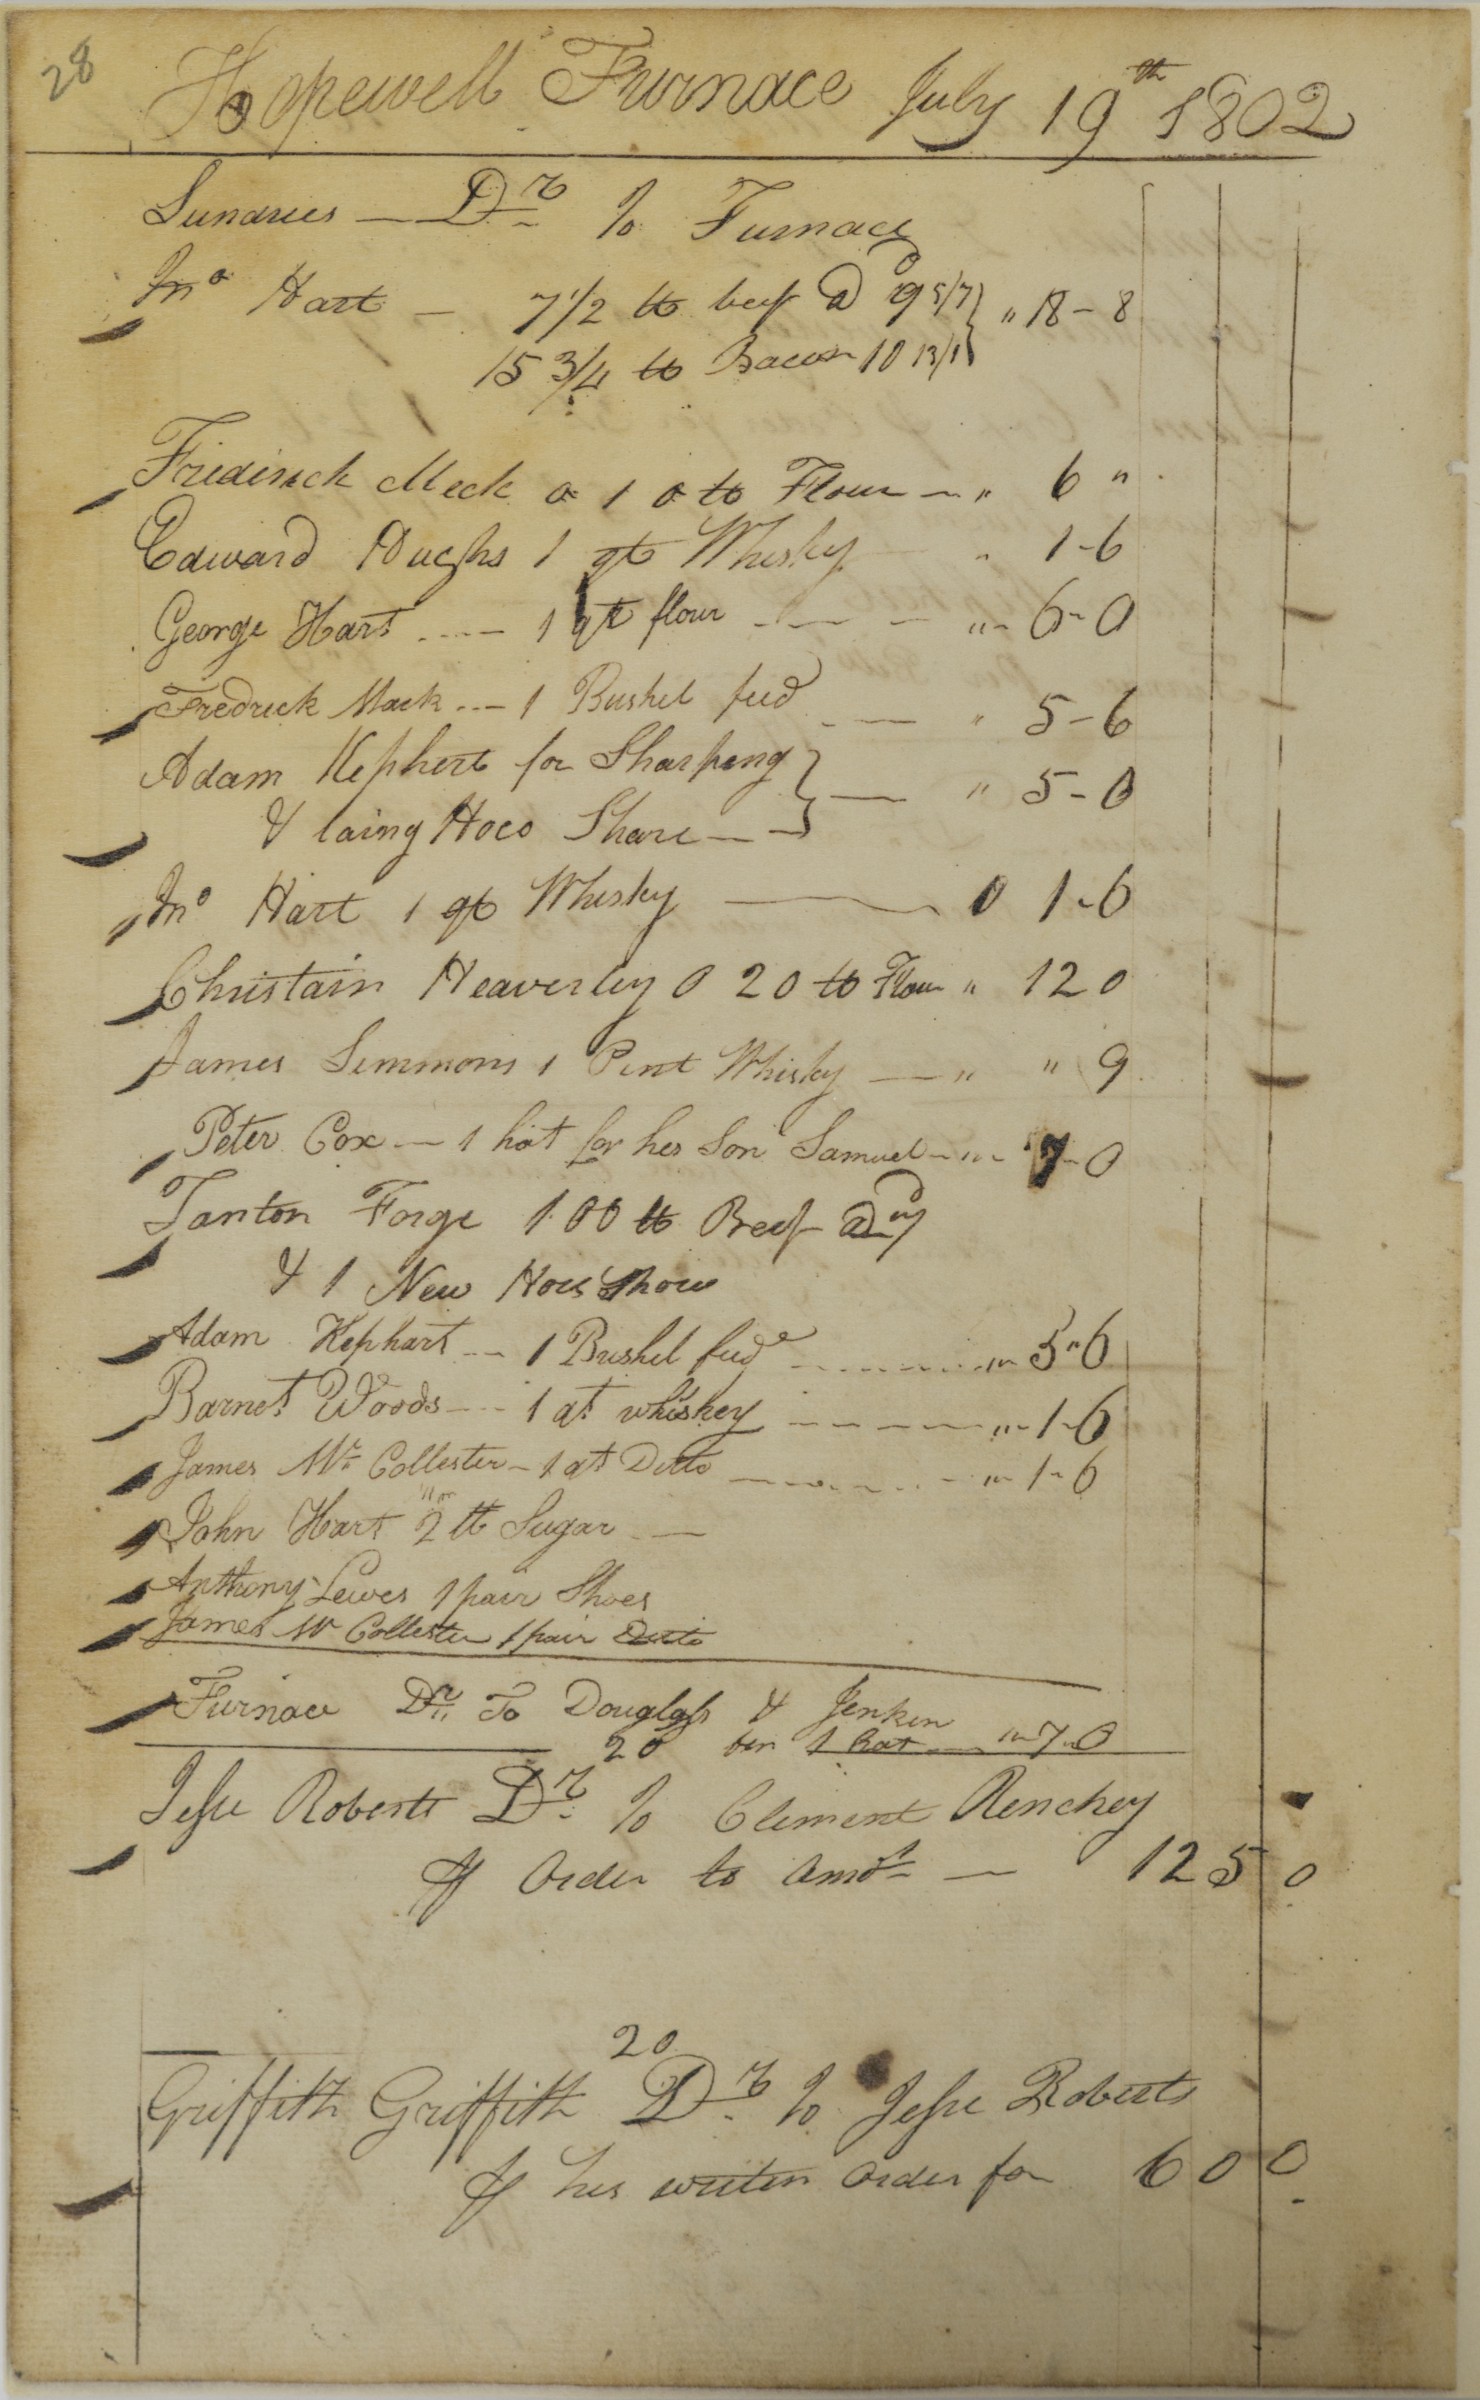 28
Hopewell Furnace July 19th 1802
Sundries — Dr To Furnace
Jno Hart — 7 1/2 lb beef @ 9d 5/7 } " 18 - 8
15 3/4 lb Bacon 10 13/1
Frederick Meck 0 = 1 0 lb Flour — " 6 "
Edward Hughs 1 qt Whisky " 1-6
George Hart ---- 1 qr flour ---- " 6-0
Fredrick Mack --- 1 Bushel feed --- " 5-6
Adam Kephert for Sharpeng } — " 5-0
& laing Hoco Share — —
Jno Hart 1 qt Whisky — 0 1-6
Christain Heaverley 0 20 lb Flour " 12 0
James Simmons 1 Pint Whisky — " " 9
Peter Cox — 1 hat for hes Son Samuel — " 7-0
Tanton Forge 1.00 lb Beef @
& 1 New Hors Show
Adam Kephart --- 1 Bushel feed ------ " 5"6
Barnet Woods --- 1 qt whiskey ------ " 1-6
James Mc Collester - 1 qt Ditto ------ " 1-6
John Hart 2 lb Sugar —
Anthony Lewes 1 pair Shoes
James Mc Collester 1 pair Ditto
Furnace Dr To Douglass & Jenken
20 for 1 hat — " 7-0
Jesse Roberts Dr To Clement Renchey
⅌ Order to Amot — 125 0
20
Griffith Griffith Dr To Jesse Roberts
⅌ his writen order for 60 0